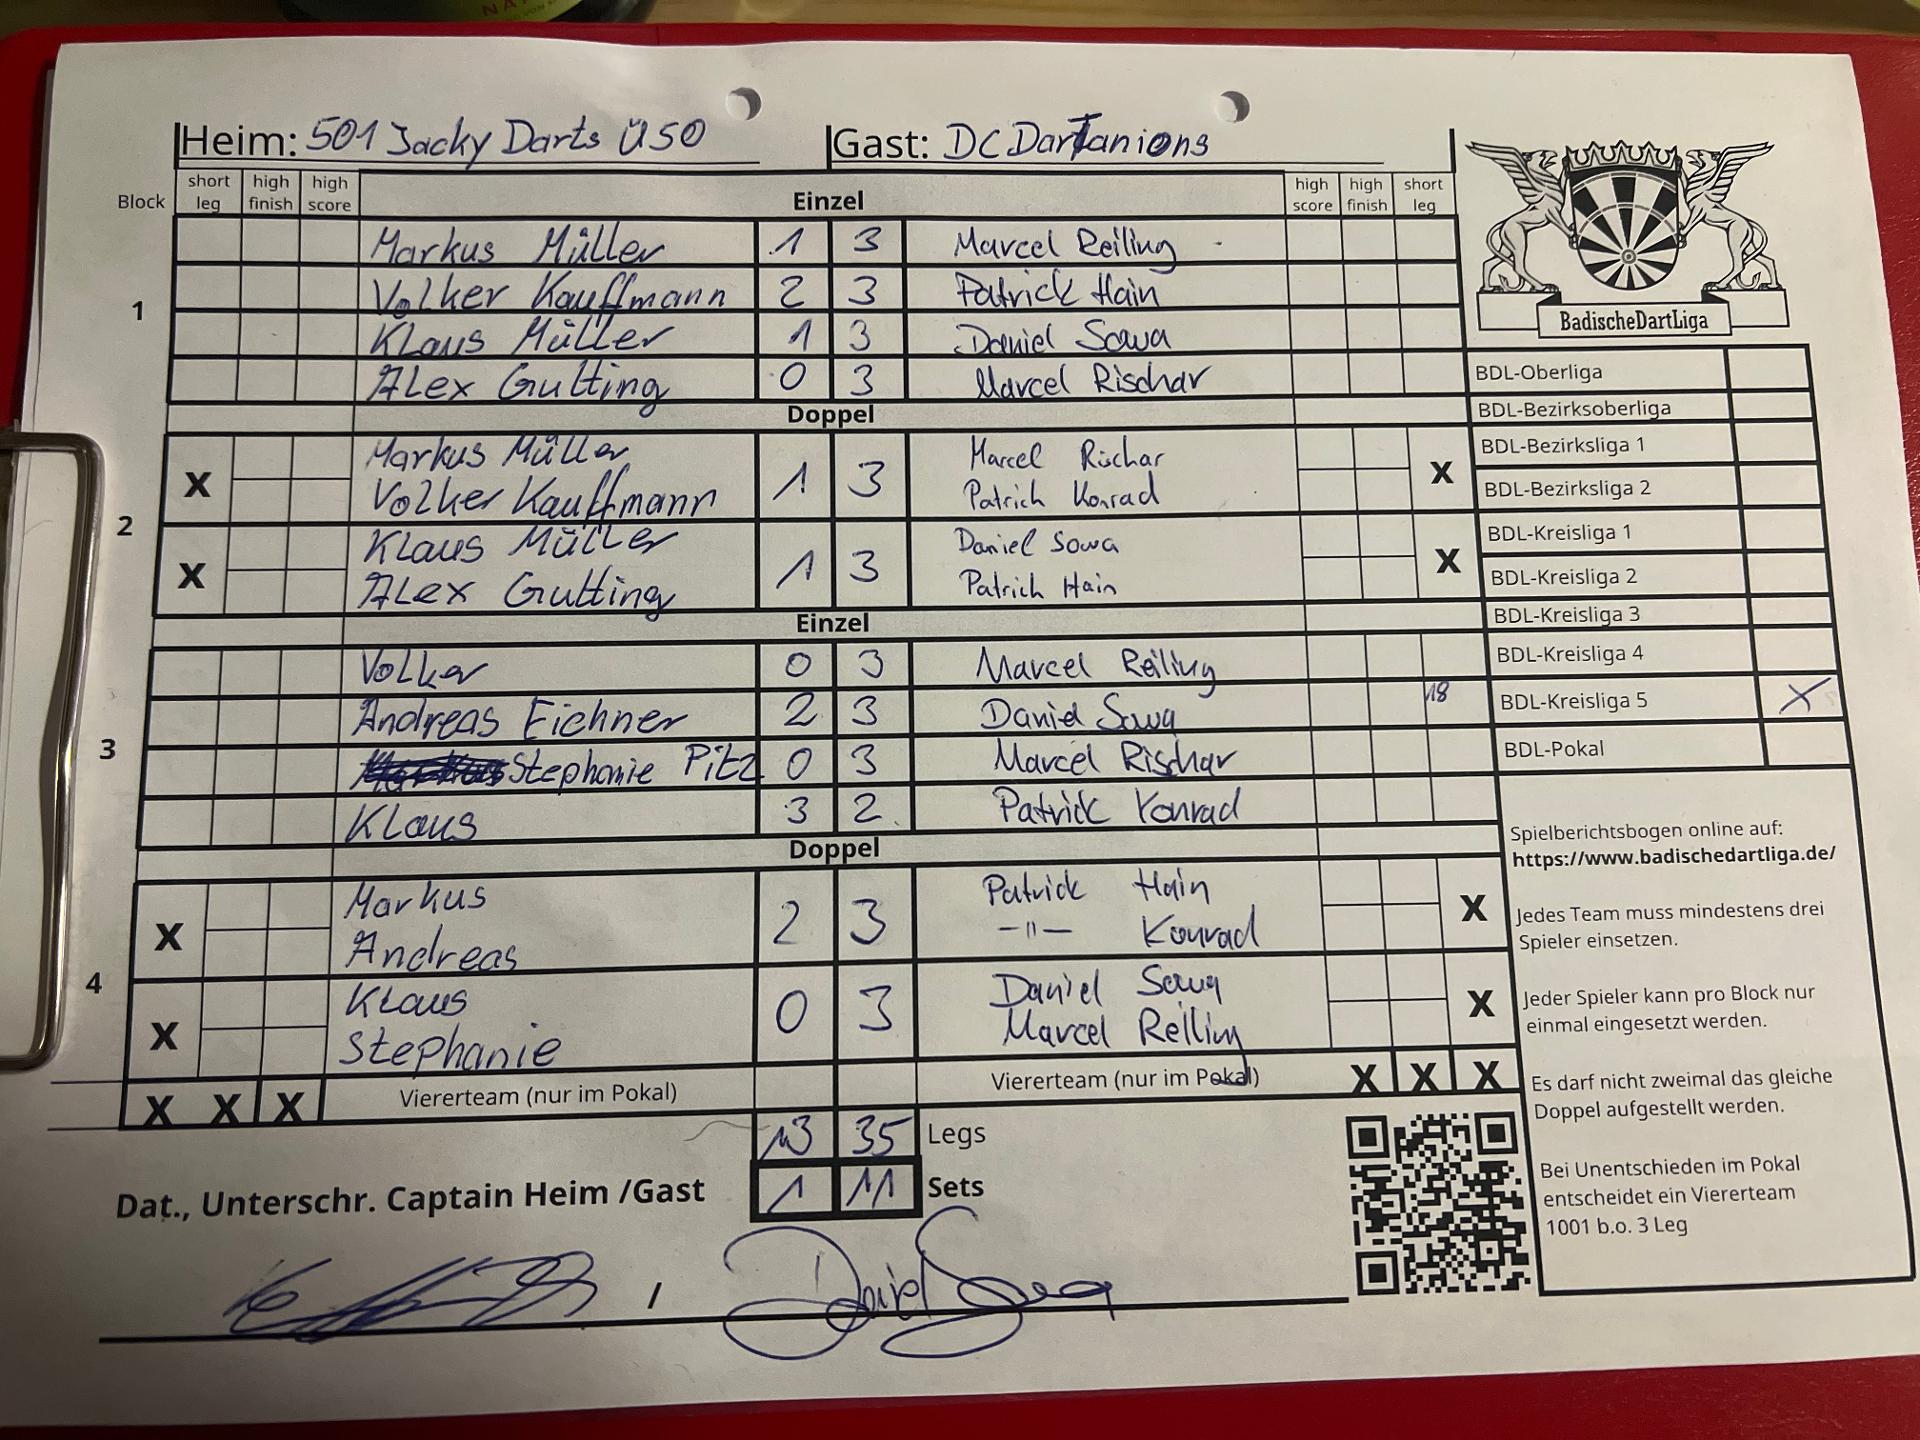 NA
Heim: 501 Jacky Darts Ü50 Gast: DC DarTanions
Block short leg high finish high score Einzel high score high finish short leg
1
Markus Müller 1 3 Marcel Reiling
Volker Kauffmann 2 3 Patrick Hain
Klaus Müller 1 3 Daniel Sowa
Alex Gutting 0 3 Marcel Rischar
Doppel
2
X Markus Müller 1 3 Marcel Rischar X
Volker Kauffmann Patrick Konrad
X Klaus Müller 1 3 Daniel Sowa X
Alex Gutting Patrick Hain
Einzel
3
Volker 0 3 Marcel Reiling
Andreas Eichner 2 3 Daniel Sowa 18
Stephanie Pitz 0 3 Marcel Rischar
Klaus 3 2 Patrick Konrad
Doppel
4
X Markus 2 3 Patrick Hain X
Andreas -"- Konrad
X Klaus 0 3 Daniel Sowa X
Stephanie Marcel Reiling
X X X Viererteam (nur im Pokal) Viererteam (nur im Pokal) X X X
13 35 Legs
Dat., Unterschr. Captain Heim /Gast 1 11 Sets
/ Daniel Sowa
BadischeDartLiga
BDL-Oberliga
BDL-Bezirksoberliga
BDL-Bezirksliga 1
BDL-Bezirksliga 2
BDL-Kreisliga 1
BDL-Kreisliga 2
BDL-Kreisliga 3
BDL-Kreisliga 4
BDL-Kreisliga 5 X
BDL-Pokal
Spielberichtsbogen online auf:
https://www.badischedartliga.de/
Jedes Team muss mindestens drei
Spieler einsetzen.
Jeder Spieler kann pro Block nur
einmal eingesetzt werden.
Es darf nicht zweimal das gleiche
Doppel aufgestellt werden.
Bei Unentschieden im Pokal
entscheidet ein Viererteam
1001 b.o. 3 Leg